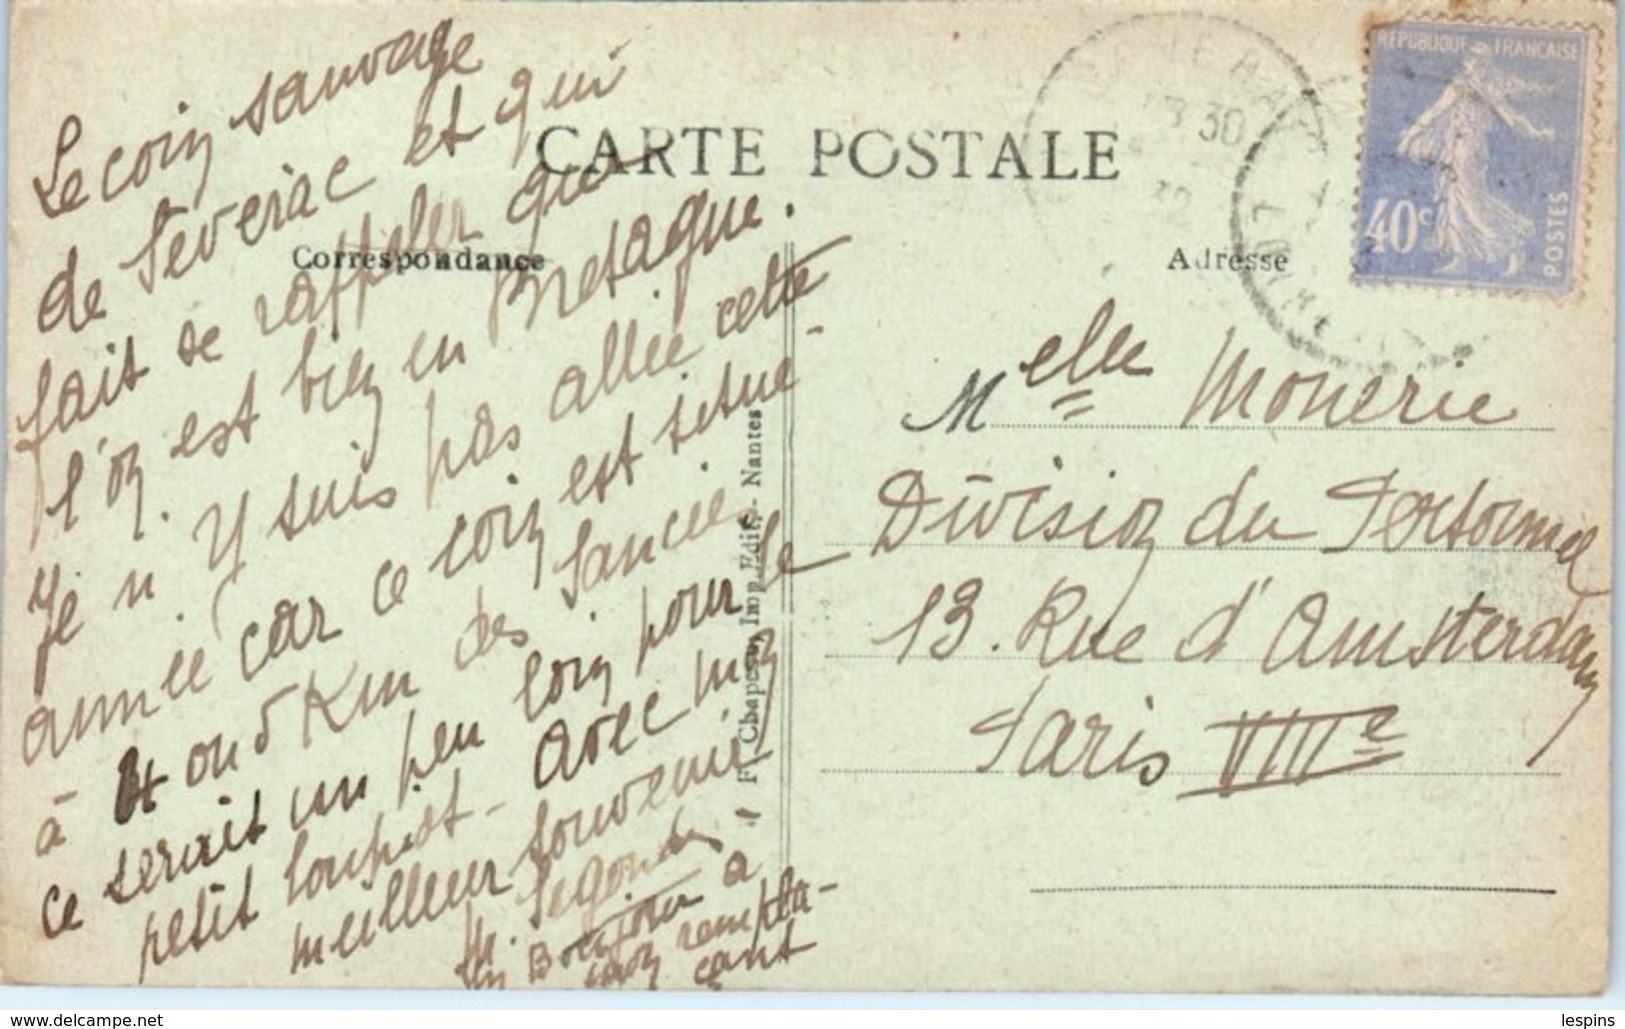 Le coin sauvage
de Severac et qui
fait se rappeler que
l'on est bien en Bretagne.
Je n'y suis pas allée cette
année car ce coin est situé
à 4 ou 5 Km des Sancies
ce serait un peu loin pour le
petit loupiot - avec mon
meilleur souvenir
M. Segondes
un Bonjour à
mon rempla-
çant
CARTE POSTALE
Correspondance
Adresse
F. Chapeau, Imp. Edit., - Nantes
REPUBLIQUE FRANCAISE
40c
POSTES
30
32
Melle Monerie
Division du Personnel
13. Rue d'Amsterdam
Paris VIIIe
delcampe.net
lespins